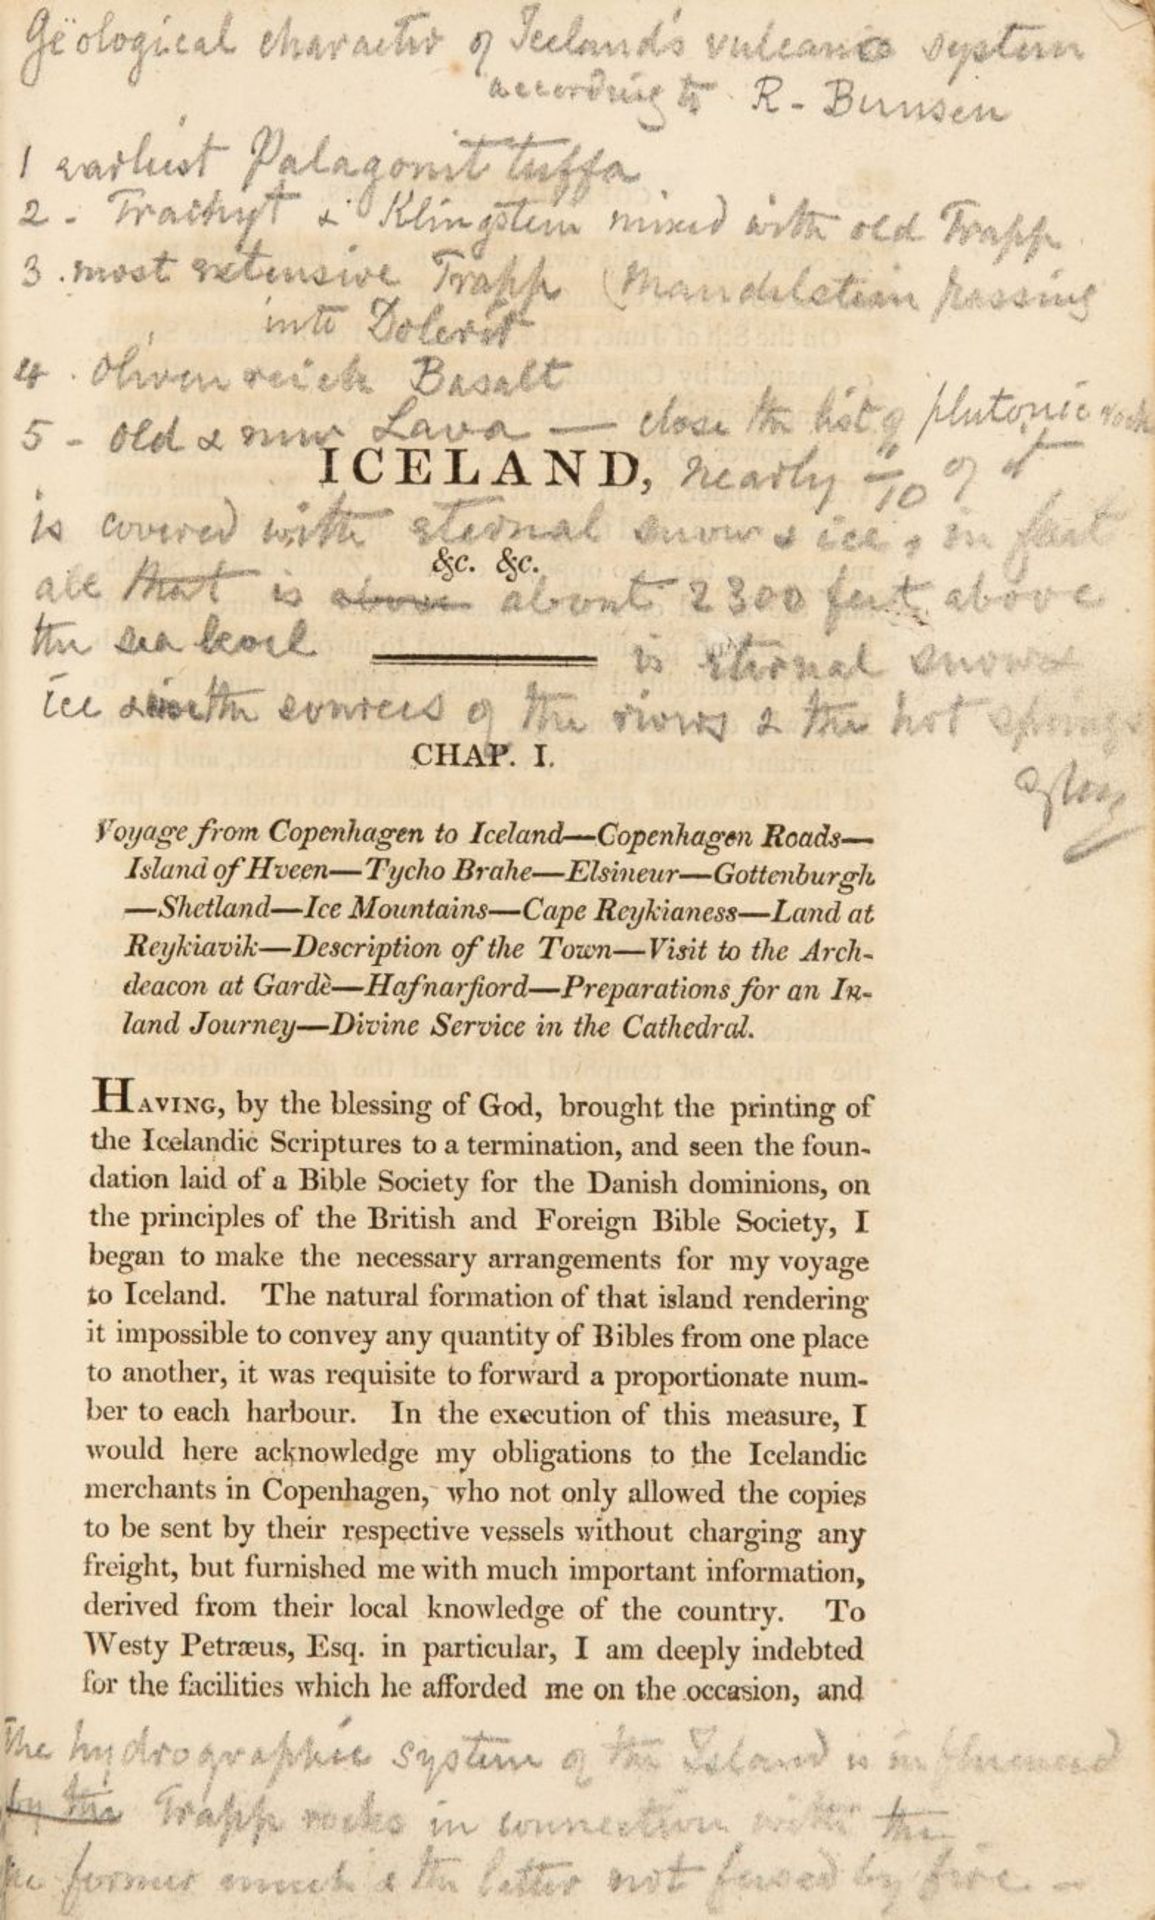 Gëological character of Iceland's vulcanic system
according to R. Bunsen
1 earliest Palagonit tuffa
2 - Trachyt & Klingstein mixed with old Trapp
3. most extensive Trapp (Mandelstein passing
into Dolerit
4. Olivenreich Basalt
5 - old & new Lava — close the list of plutonic rock
ICELAND, nearly /10 of it
is covered with eternal snow & ice, in fact
&c. &c.
all that is above about 2300 feet above
the sea level is eternal snow &
ice & in the sources of the rivers & the hot springs
CHAP. I.
Voyage from Copenhagen to Iceland—Copenhagen Roads—
Island of Hveen—Tycho Brahe—Elsineur—Gottenburgh
—Shetland—Ice Mountains—Cape Reykianess—Land at
Reykiavik—Description of the Town—Visit to the Arch-
deacon at Gardè—Hafnarfiord—Preparations for an In-
land Journey—Divine Service in the Cathedral.
HAVING, by the blessing of God, brought the printing of
the Icelandic Scriptures to a termination, and seen the foun-
dation laid of a Bible Society for the Danish dominions, on
the principles of the British and Foreign Bible Society, I
began to make the necessary arrangements for my voyage
to Iceland. The natural formation of that island rendering
it impossible to convey any quantity of Bibles from one place
to another, it was requisite to forward a proportionate num-
ber to each harbour. In the execution of this measure, I
would here acknowledge my obligations to the Icelandic
merchants in Copenhagen, who not only allowed the copies
to be sent by their respective vessels without charging any
freight, but furnished me with much important information,
derived from their local knowledge of the country. To
Westy Petræus, Esq. in particular, I am deeply indebted
for the facilities which he afforded me on the occasion, and
The hydrographic system of the Island is influenced
by the Trapp rocks in connection with the
former much & the latter not fused by fire -